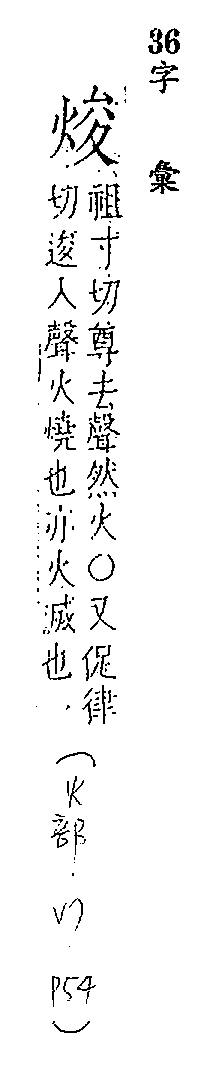 36字 彙
焌
祖寸切尊去聲然火○又促律
切逡入聲火燒也亦火滅也.
(火部.P54)